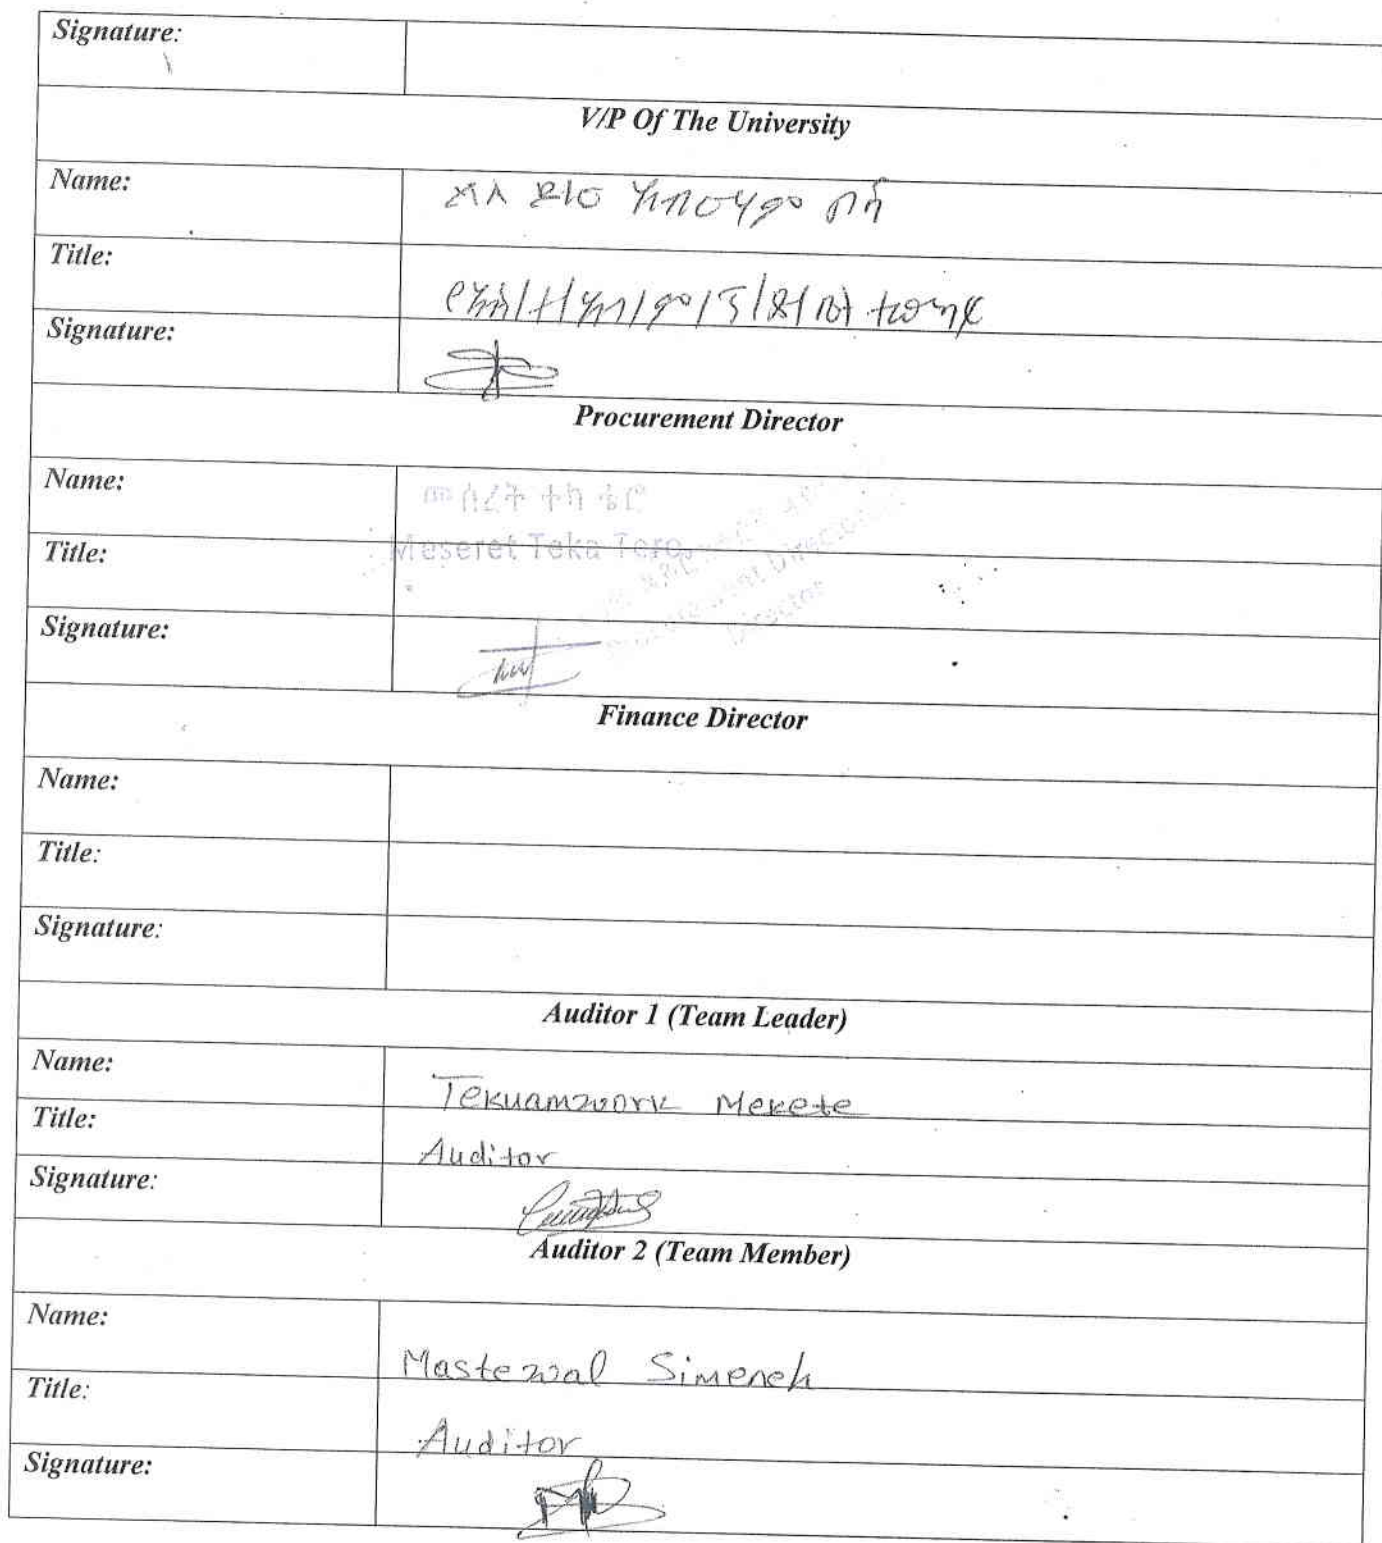 Signature:
V/P Of The University
Name:
Title:
Signature:
Procurement Director
Name:
መሰረት ተካ ቴሮ
Meseret Teka Tero
Title:
Director
Signature:
Finance Director
Name:
Title:
Signature:
Auditor 1 (Team Leader)
Name: Tekuamwork Mekete
Title: Auditor
Signature:
Auditor 2 (Team Member)
Name: Mastewal Simeneh
Title: Auditor
Signature: